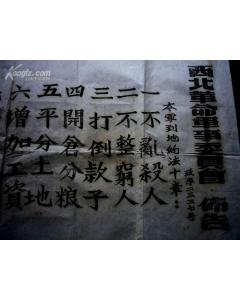 西北革命軍事委員會 佈告
本軍到地約法十章：
一 不亂殺人
二 不整窮人
三 打倒款子
四 開倉分粮
五 平分土地
六 增加工資